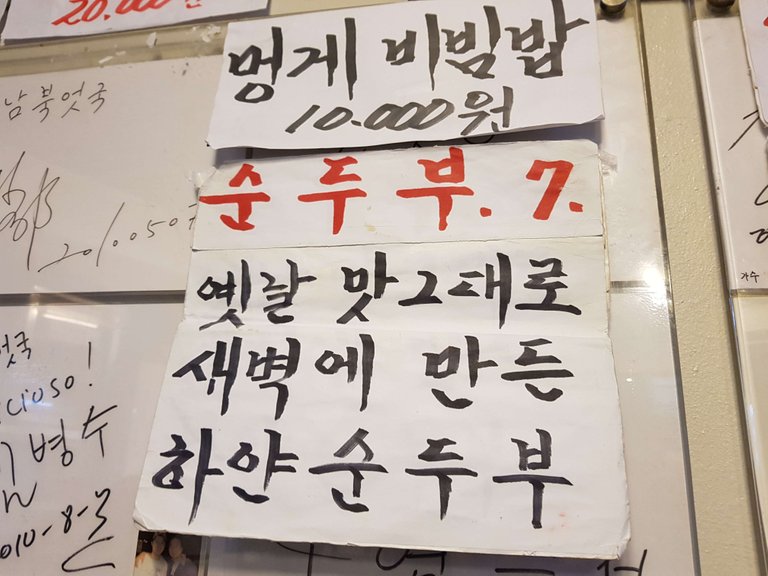 20.000원
멍게 비빔밥
10.000원
순두부. 7.
옛날 맛그대로
새벽에 만든
하얀 순두부
남북엇국
2010.05.0
엇국
cioso!
병수
010-8-3
가수